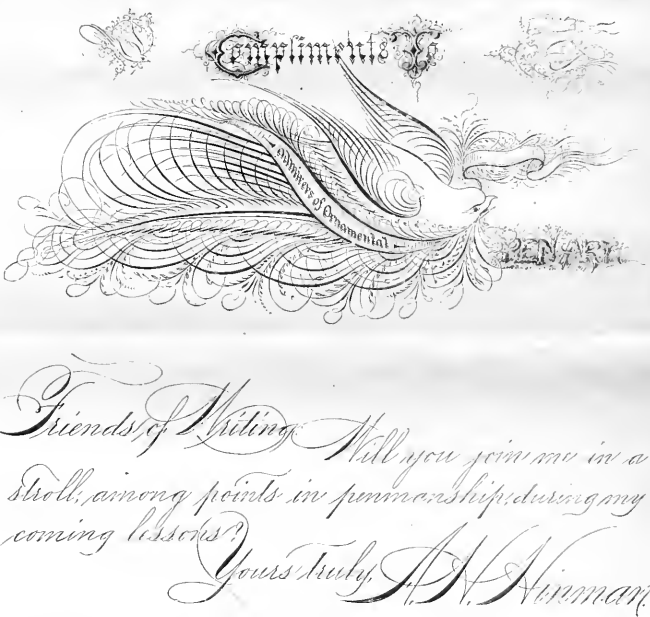 Compliments To
Admirers of Ornamental
PEN ART
Friends of Writing Will you join me in a
stroll, among points in penmanship, during my
coming lessons?
Yours truly, A. N. Hinman